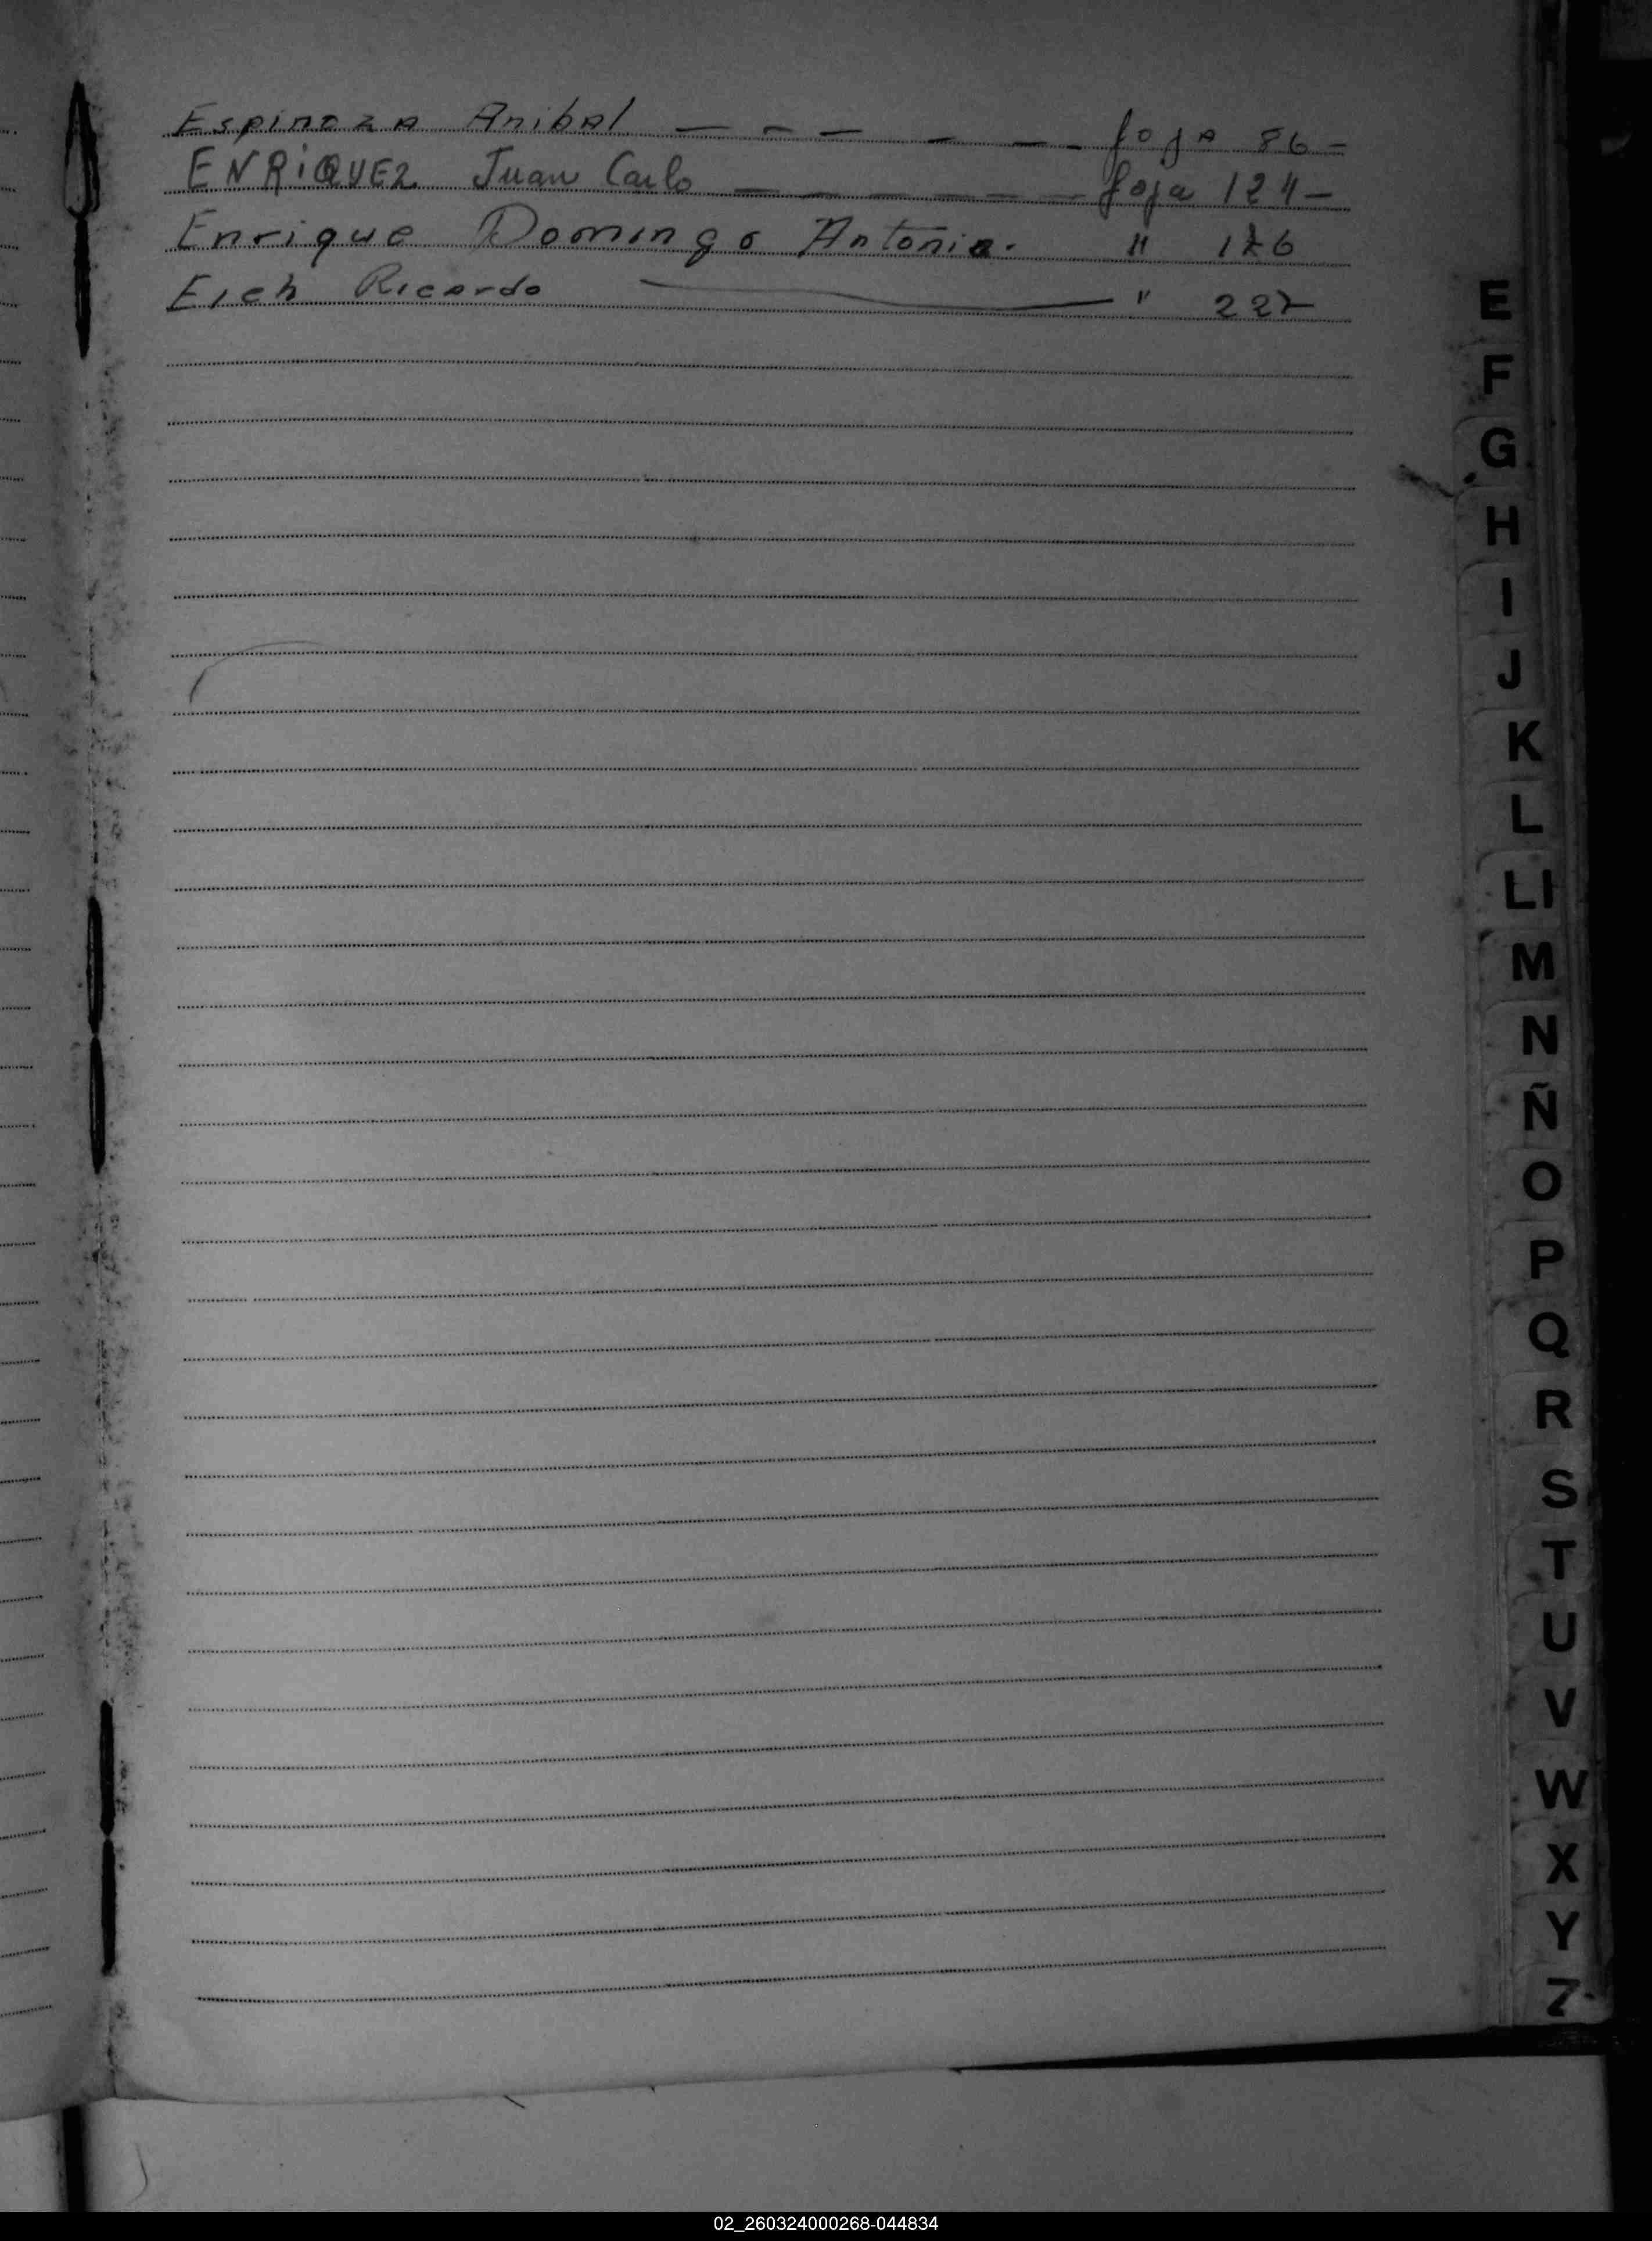 Espinoza Anibal — — — — — foja 86 –
ENRiQUEZ Juan Carlo — — — — foja 124 –
Enrique Domingo Antonio. "
Eich Ricardo — "
E
F
G
H
I
J
K
L
Ll
M
N
Ñ
O
P
Q
R
S
T
U
V
W
X
Y
Z
02_260324000268-044834